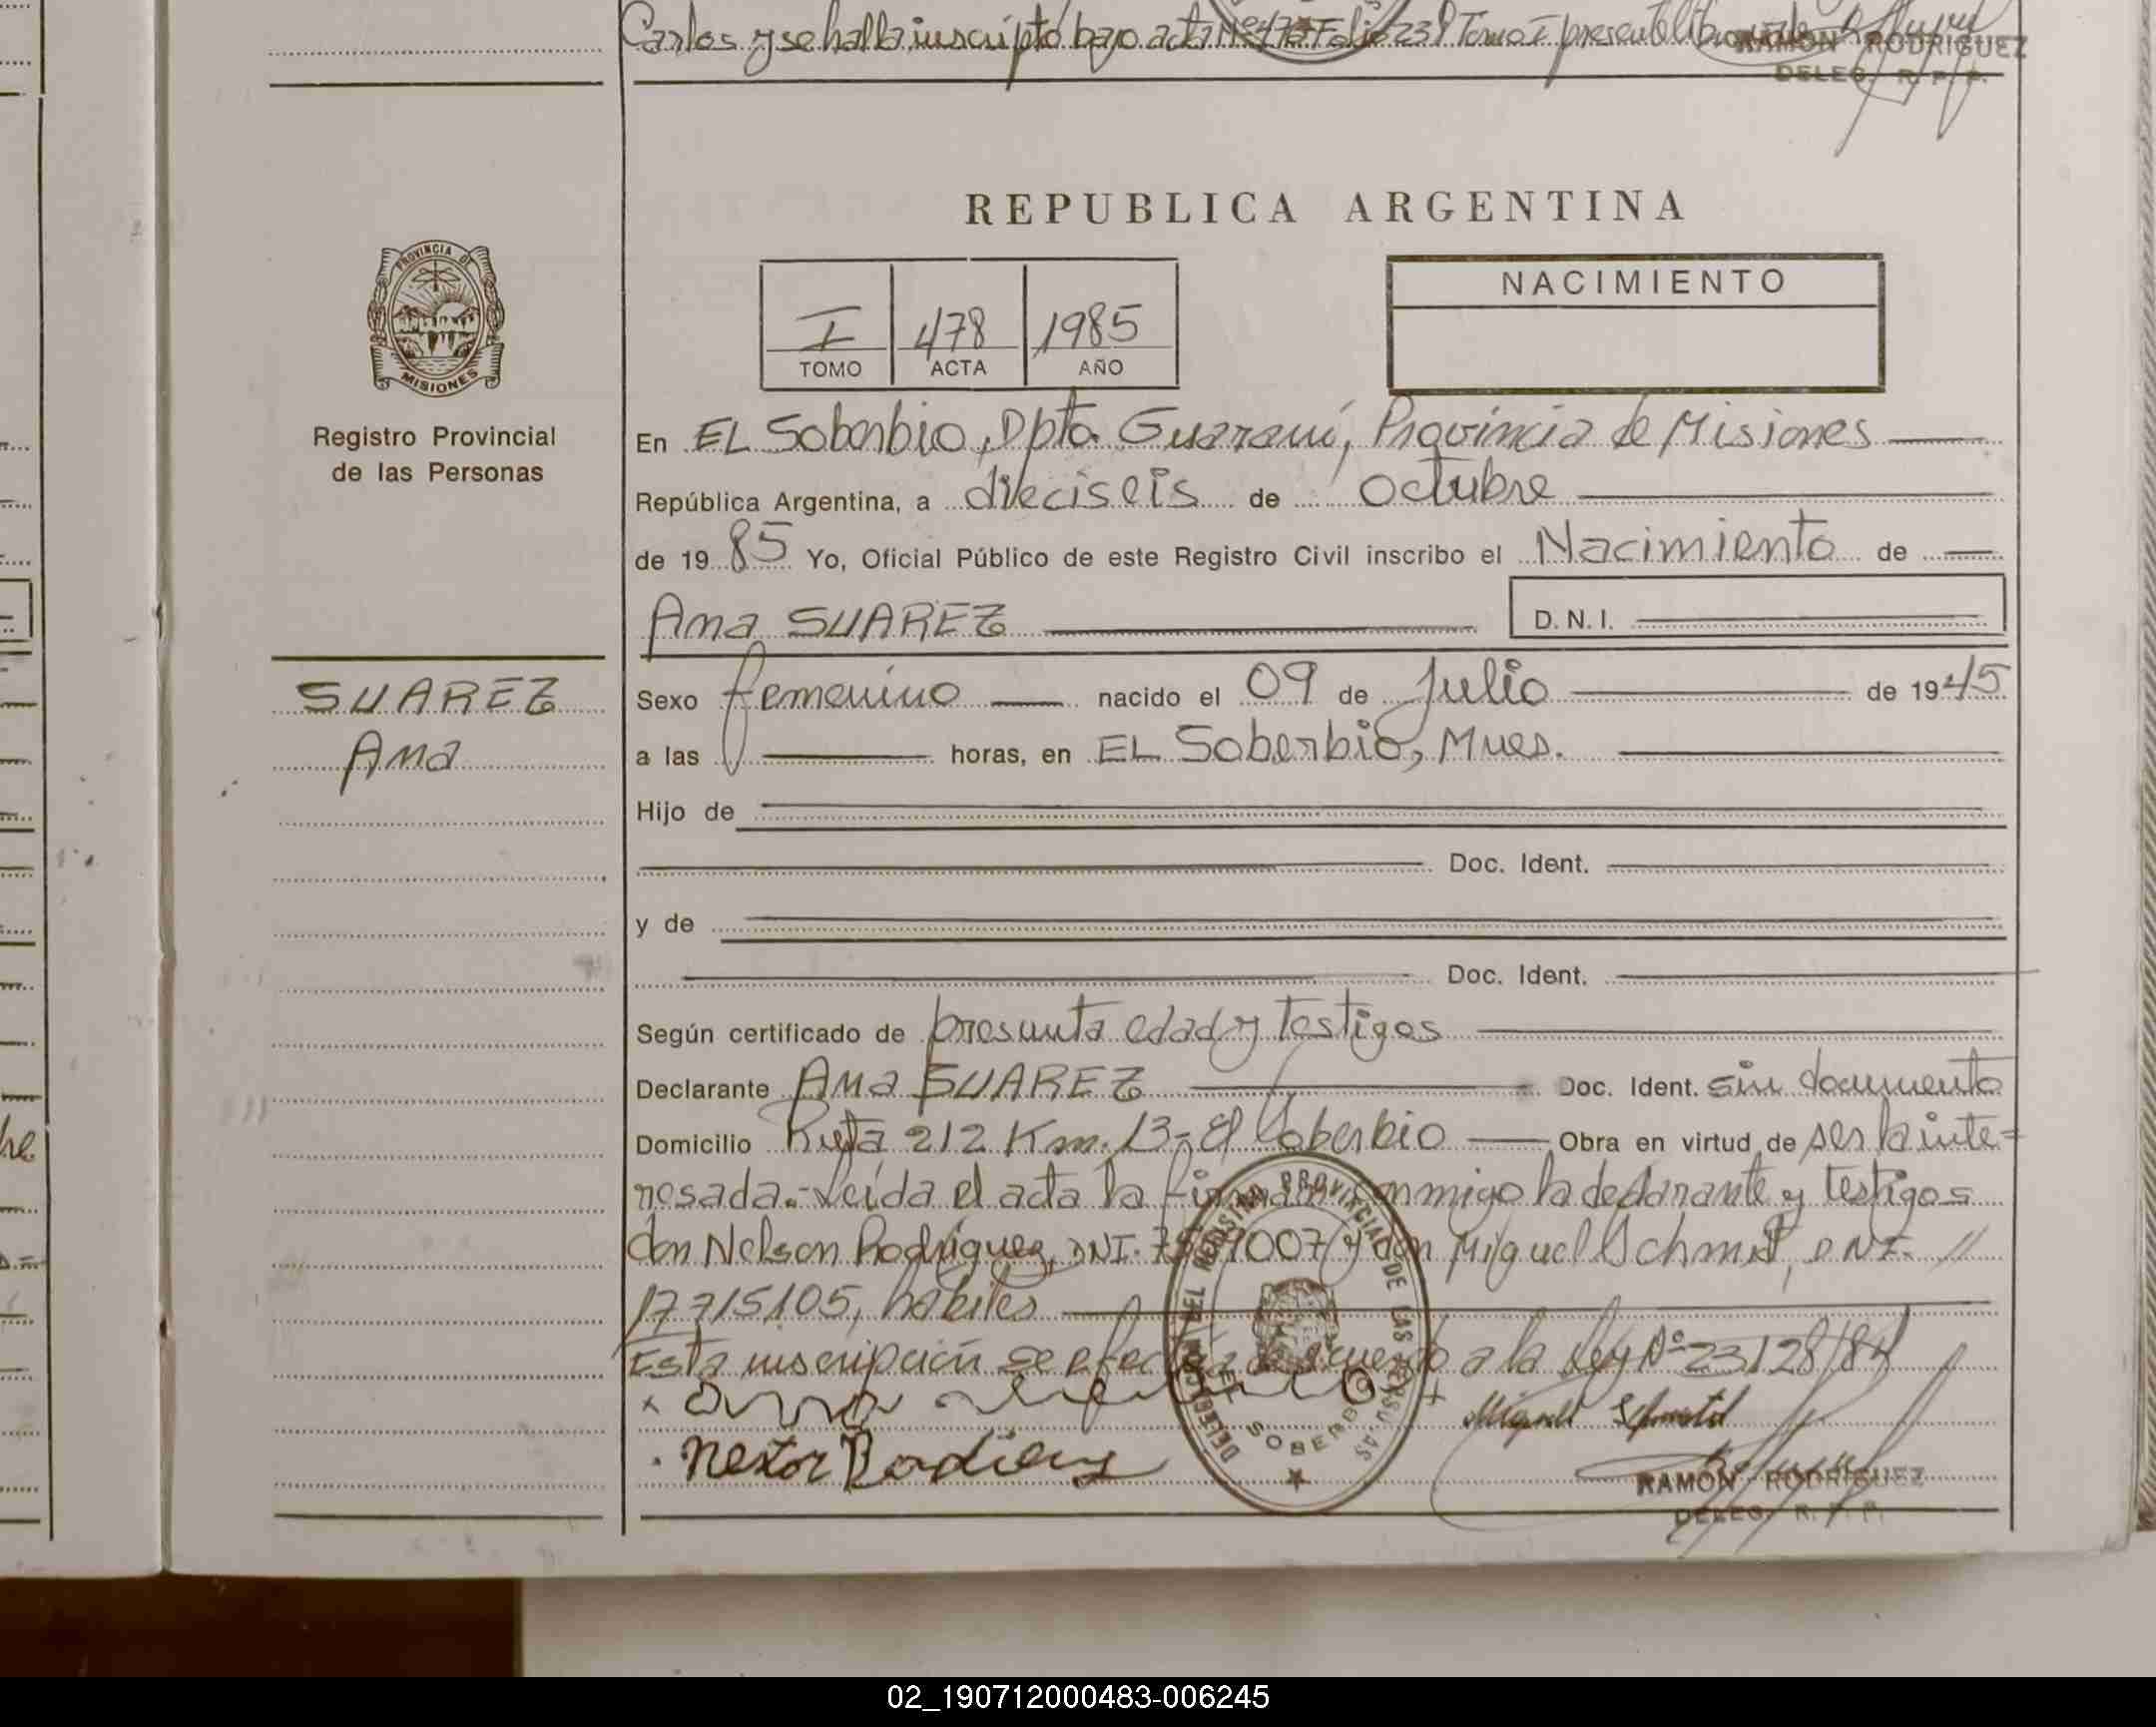 Carlos y se halla inscripto bajo acta Folio 239 Tomo I presente libro
RAMON RODRIGUEZ
DELEG. R. P. P.
REPUBLICA ARGENTINA
PROVINCIA DE
MISIONES
Registro Provincial
de las Personas
I 478 1985
TOMO ACTA AÑO
NACIMIENTO
En EL Soberbio, Dpto. Guaraní, Provincia de Misiones
República Argentina, a dieciseis de Octubre
de 19 85 Yo, Oficial Público de este Registro Civil inscribo el Nacimiento de
Ana SUAREZ D. N. I.
SUAREZ
Ana
Sexo femenino nacido el 09 de Julio de 19 45
a las horas, en EL Soberbio, Mnes.
Hijo de
Doc. Ident.
y de
Doc. Ident.
Según certificado de presunta edad y testigos
Declarante Ana SUAREZ Doc. Ident. sin documento
Domicilio Ruta 212 Km. 13- El Soberbio Obra en virtud de ser la inte=
resada.- Leída el acta la firman conmigo la declarante y testigos
don Nelson Rodriguez, DNI. y don Miguel Schmidt, DNI. //
17715105, hábiles
Esta inscripción se efectúa de acuerdo a la Ley Nº 23128/84
Miguel
Nestor
DELEGACION DEL REGISTRO PROVINCIAL DE LAS PERSONAS
EL SOBERBIO
RAMON RODRIGUEZ
DELEG. R. P. P.
02_190712000483-006245